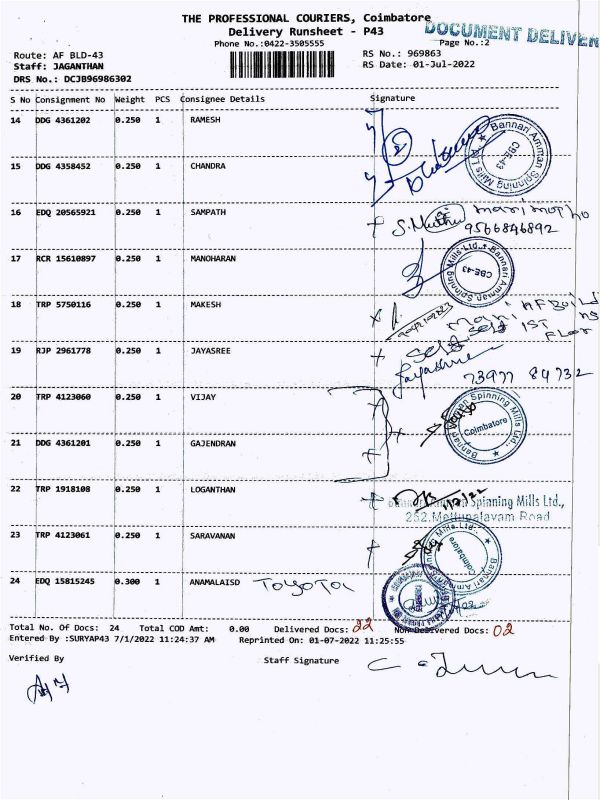 THE PROFESSIONAL COURIERS, Coimbatore
DOCUMENT DELIVER
Delivery Runsheet - P43
Phone No.:0422-3505555
Page No.:2
Route: AF BLD-43
RS No.: 969863
Staff: JAGANTHAN
RS Date: 01-Jul-2022
DRS No.: DCJB96986302
S No Consignment No Weight PCS Consignee Details Signature
14 DDG 4361202 0.250 1 RAMESH
Bannari Amman Spinning Mills Ltd., CBE-43
15 DDG 4358452 0.250 1 CHANDRA
16 EDQ 20565921 0.250 1 SAMPATH
S. Muthu
9566846892
17 RCR 15610897 0.250 1 MANOHARAN
Bannari Amman Spinning Mills Ltd., CBE-43
18 TRP 5750116 0.250 1 MAKESH
AF Build
Mani
self 1ST
Flor
19 RJP 2961778 0.250 1 JAYASREE
self
Jayashree
73977 84732
20 TRP 4123060 0.250 1 VIJAY
Bannari Amman Spinning Mills Ltd., Coimbatore
21 DDG 4361201 0.250 1 GAJENDRAN
22 TRP 1918108 0.250 1 LOGANTHAN
1/7/22
Spinning Mills Ltd.,
252,Mettupalayam Road
23 TRP 4123061 0.250 1 SARAVANAN
Bannari Amman Spinning Mills Ltd., Coimbatore
24 EDQ 15815245 0.300 1 ANAMALAISD Toyota
Total No. Of Docs: 24 Total COD Amt: 0.00 Delivered Docs: 22 Non-Delivered Docs: 02
Entered By :SURYAP43 7/1/2022 11:24:37 AM Reprinted On: 01-07-2022 11:25:55
Verified By Staff Signature